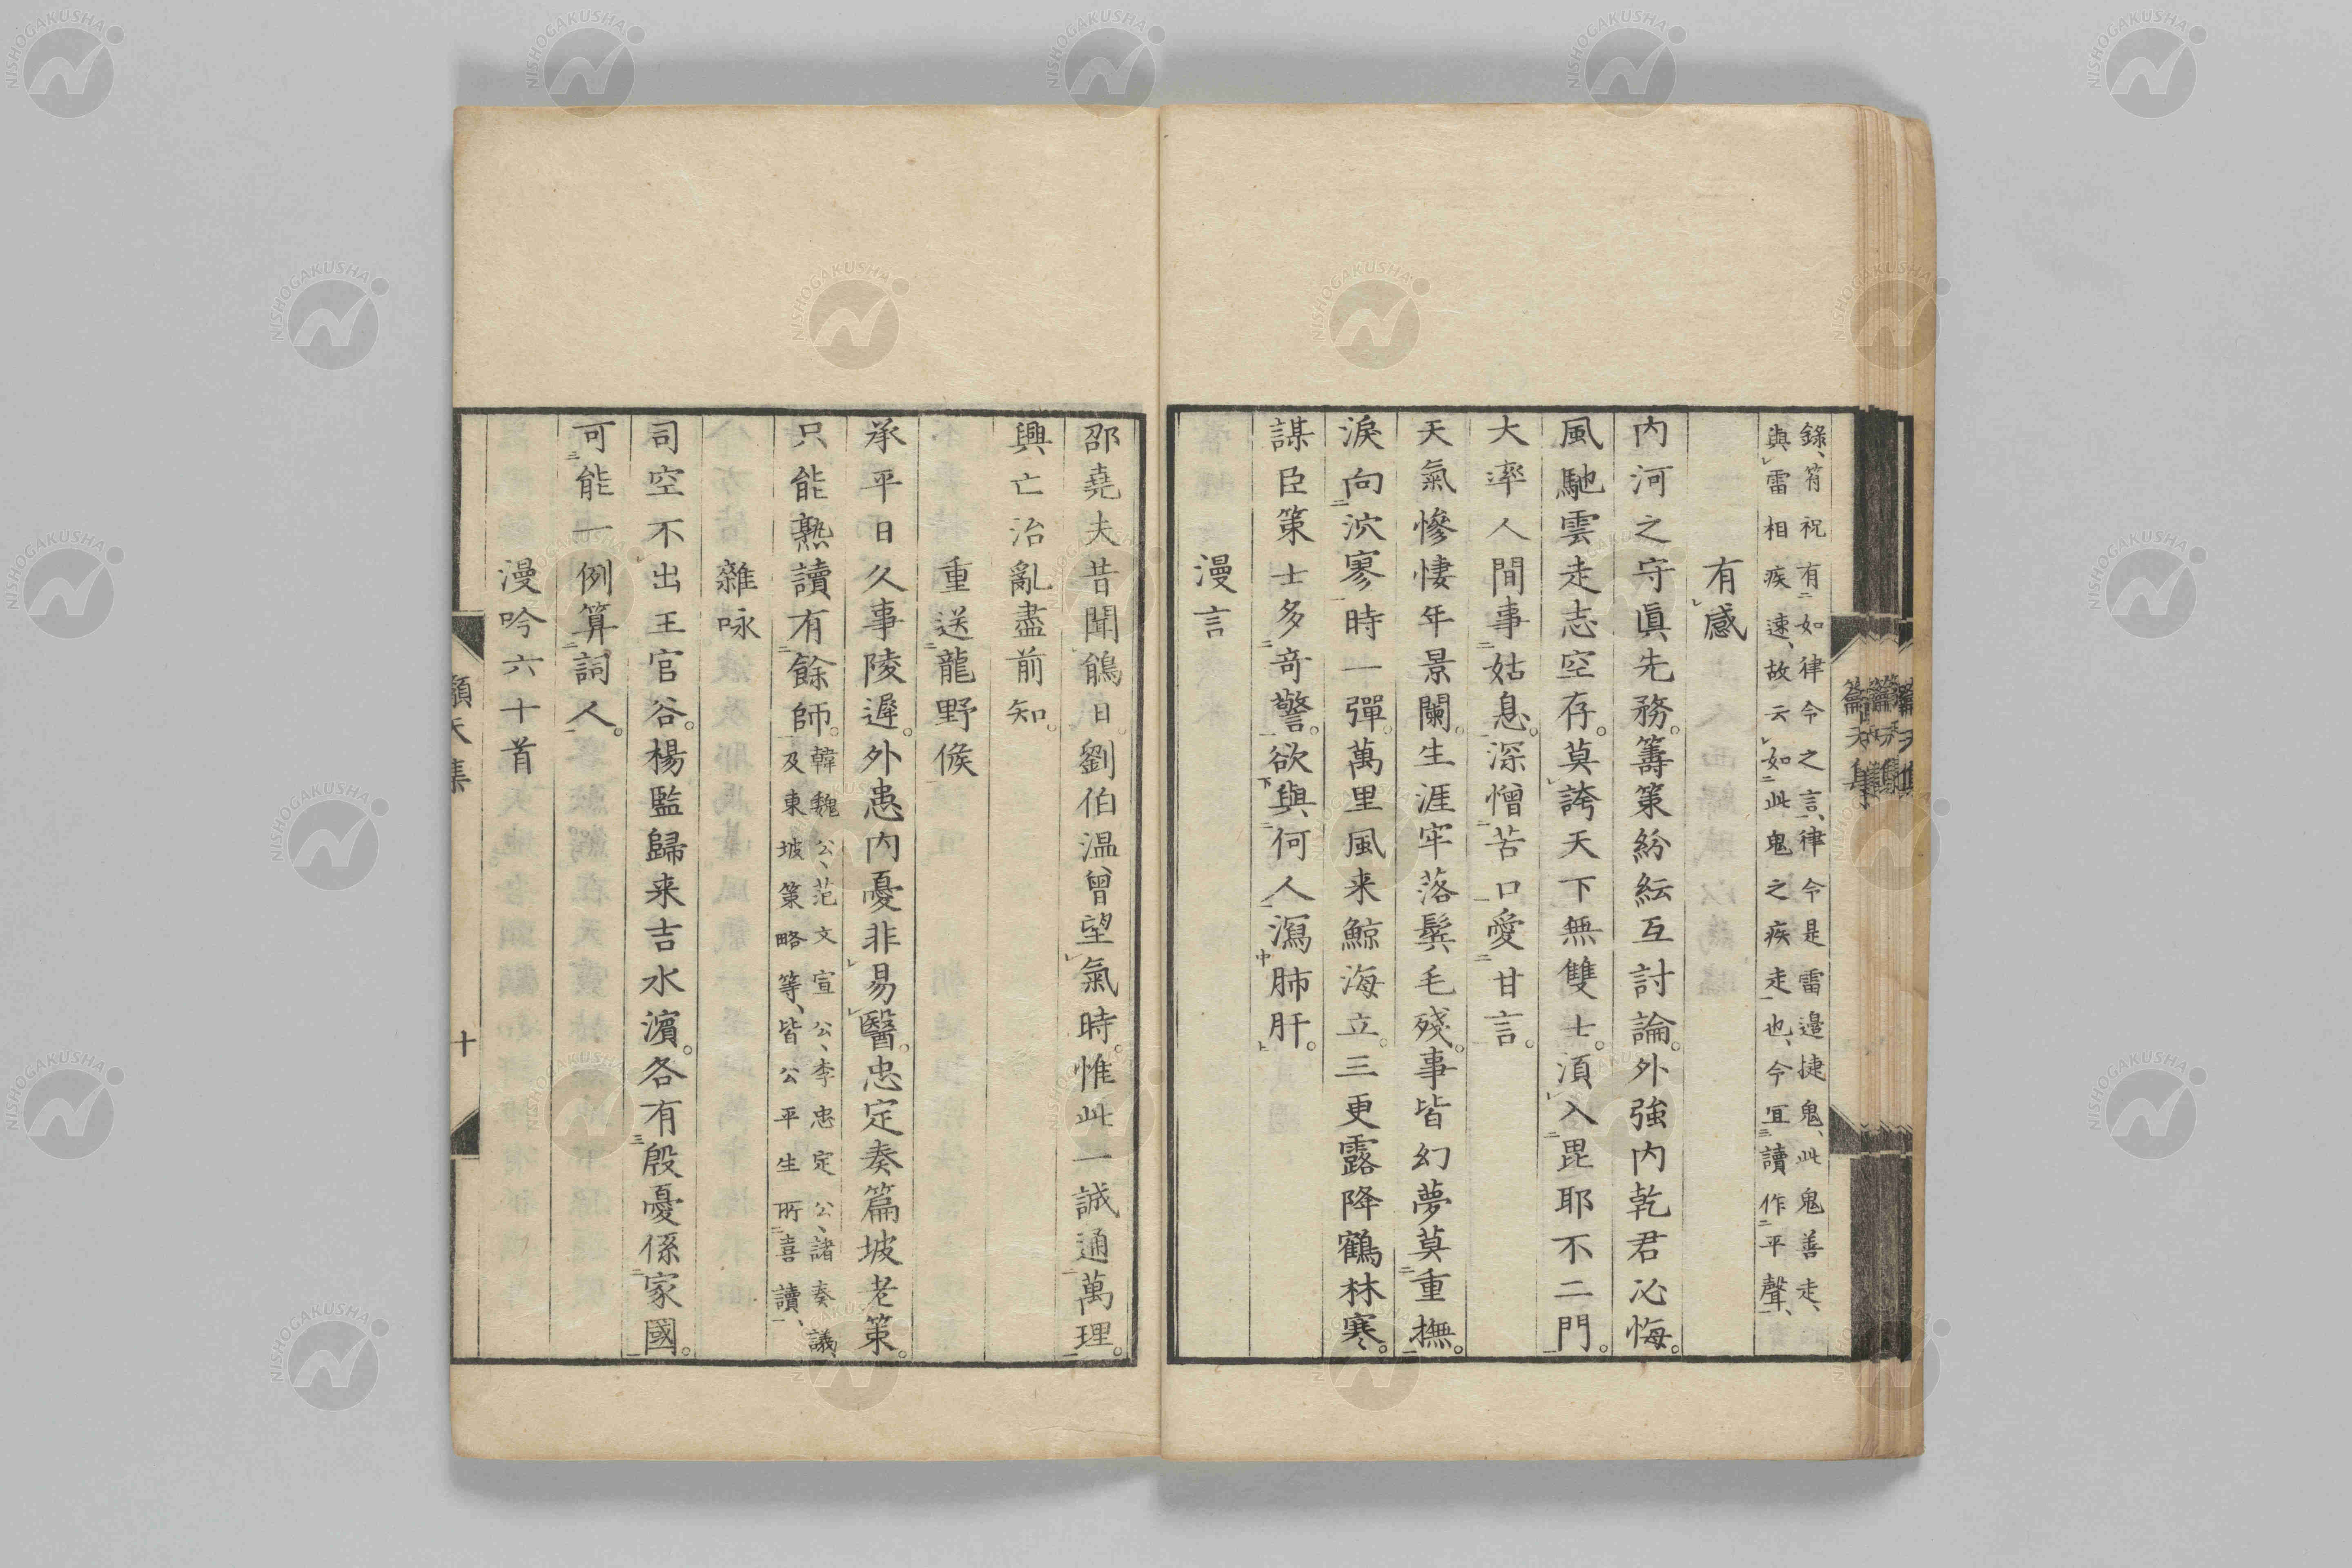 錄、符祝有如律令之言、律令是雷邉捷鬼、此鬼善走、
與雷相疾速、故云如此鬼之疾走也、今冝讀作平聲、
有感
内河之守眞先務。籌策紛紜互討論。外強内乾君必悔。
風馳雲走志空存。莫誇天下無雙士。湏入毘耶不二門。
大率人間事姑息。深憎苦口愛甘言。
天氣慘悽年景闌。生涯牢落鬓毛殘。事皆幻夢莫重撫。
淚向泬寥時一彈。萬里風来鯨海立。三更露降鶴林寒。
謀臣策士多竒警。欲與何人瀉肺肝。
漫言
邵堯夫昔聞鵑日。劉伯温曾望氣時。惟此一誠通萬理。
興亡治亂盡前知。
重送龍野候
承平日久事陵遲。外患内憂非易醫。忠定奏篇坡老策。
只能熟讀有餘師。
韓魏公、范文宣公、李忠定公、諸奏議
及東坡策略等、皆公平生所喜讀、
雜咏
司空不出王官谷。楊監歸来吉水濵。各有殷憂係家國。
可能一例算詞人。
漫吟六十首
籲天集
十
NISHOGAKUSHA